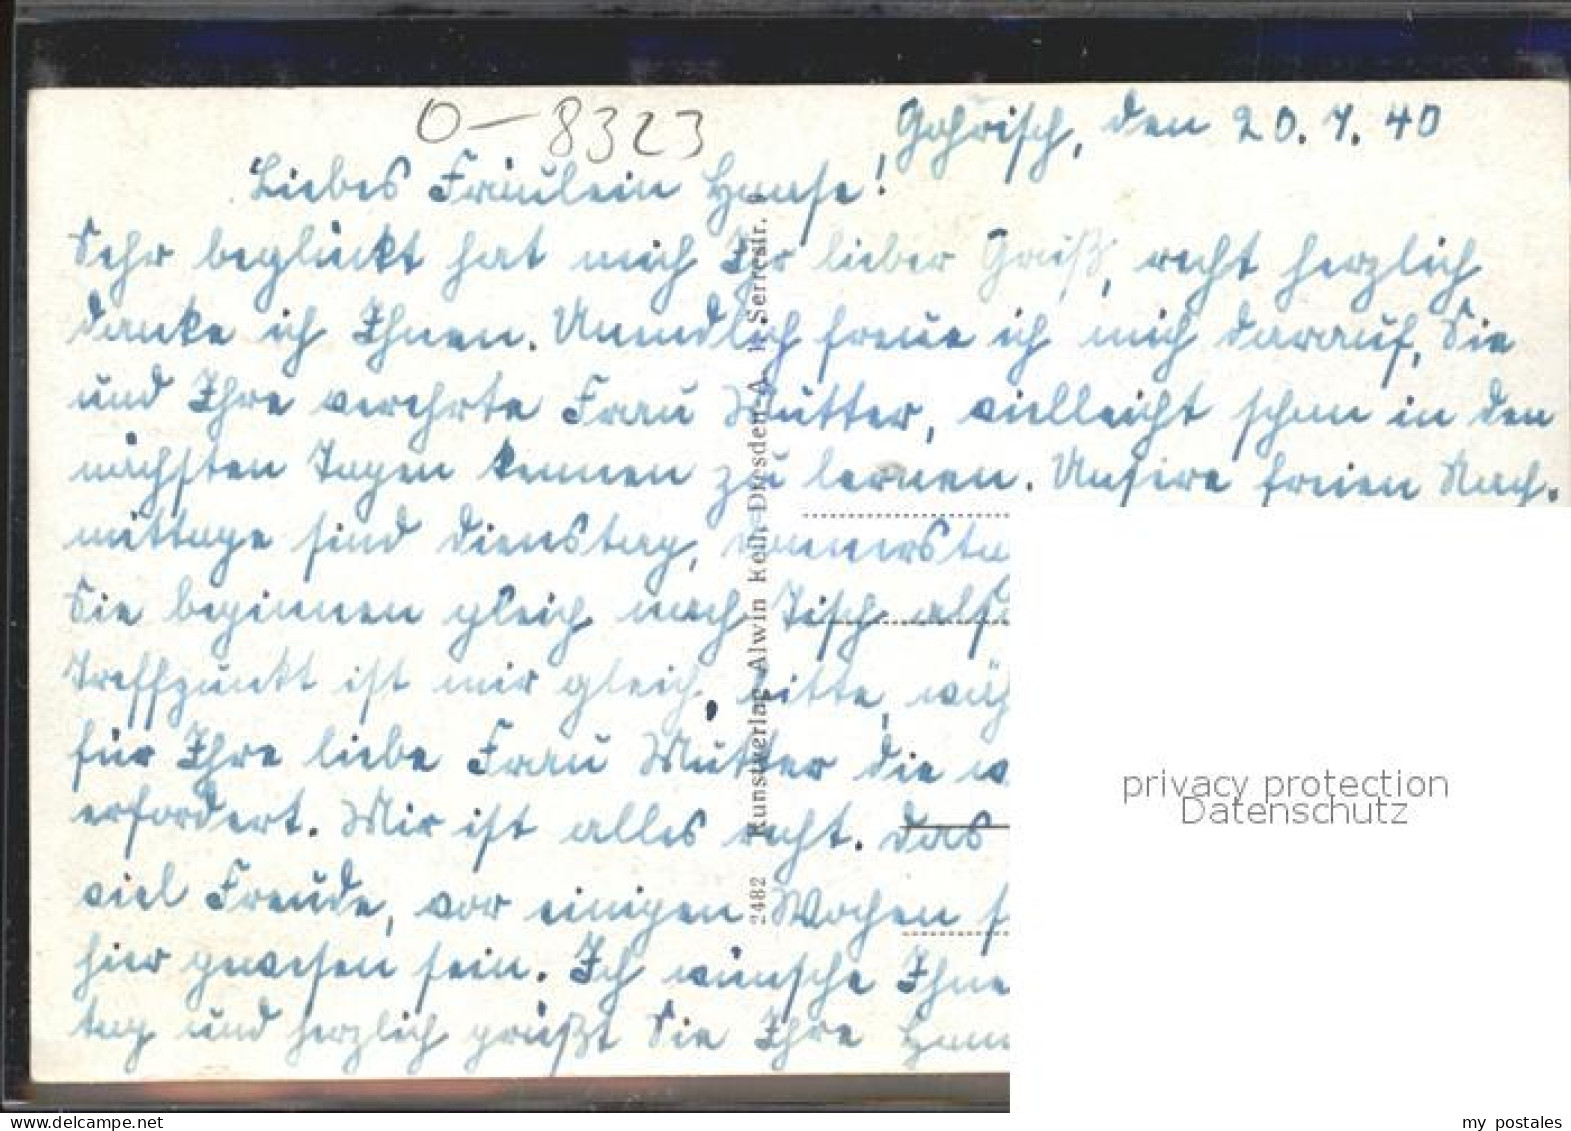 0-8323
Gohrisch, den 20.7.40
Liebes Fräulein Haase!
Sehr beglückt hat mich Ihr lieber Gruß, recht herzlich
danke ich Ihnen. Unendlich freue ich mich darauf, Sie
und Ihre verehrte Frau Mutter, vielleicht schon in den
nächsten Tagen kennen zu lernen. Unsere freien Nach-
mittage sind Dienstag, Donnersta
Sie beginnen gleich nach Tisch also
Treffpunkt ist mir gleich, bitte, wäh
für Ihre liebe Frau Mutter die w
erfordert. Mir ist alles recht. Das
viel Freude, vor einigen Wochen s
hier gewesen sein. Ich wünsche Ihne
tag und herzlich grüßt Sie Ihre Hann
2482 Kunstverlag Alwin Keil, Dresden-A. 1, Serrestr. 9
privacy protection
Datenschutz
my postales